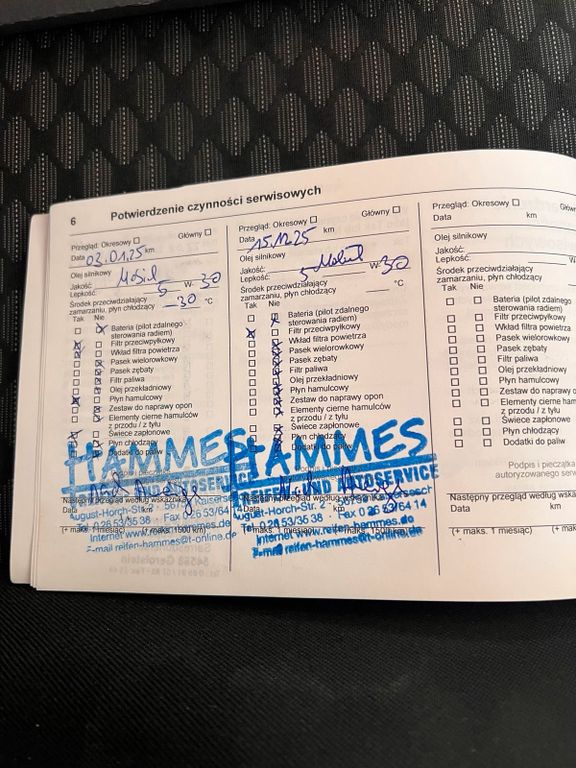 6 Potwierdzenie czynności serwisowych
Przegląd: Okresowy Główny
Data 02.01.25 km
Olej silnikowy
Jakość: Mobil
Lepkość: 5 W- 30
Środek przeciwdziałający
zamarzaniu, płyn chłodzący -30 °C
Tak Nie
Bateria (pilot zdalnego
sterowania radiem)
Filtr przeciwpyłkowy
Wkład filtra powietrza
Pasek wielorowkowy
Pasek zębaty
Filtr paliwa
Olej przekładniowy
Płyn hamulcowy
Zestaw do naprawy opon
Elementy cierne hamulców
z przodu / z tyłu
Świece zapłonowe
Płyn chłodzący
Dodatki do paliw
HAMMES
REIFEN UND AUTOSERVICE
August-Horch-Str. 2
Tel. 0 26 53/36 38 Fax 0 26 53/64 14
Internet www.reifen-hammes.de
E-mail reifen-hammes@t-online.de
Następny przegląd według wskaźnika
(+ maks. 1 miesiąc) (+ maks. 1500 km)
Przegląd: Okresowy Główny
Data 15.12.25 km
Olej silnikowy
Jakość: Mobil
Lepkość: 5 W- 30
Środek przeciwdziałający
zamarzaniu, płyn chłodzący °C
Tak Nie
Bateria (pilot zdalnego
sterowania radiem)
Filtr przeciwpyłkowy
Wkład filtra powietrza
Pasek wielorowkowy
Pasek zębaty
Filtr paliwa
Olej przekładniowy
Płyn hamulcowy
Zestaw do naprawy opon
Elementy cierne hamulców
z przodu / z tyłu
Świece zapłonowe
Płyn chłodzący
Dodatki do paliw
HAMMES
REIFEN UND AUTOSERVICE
August-Horch-Str. 2 56736 Kaisersesch
Tel. 0 26 53/36 38 Fax 0 26 53/64 14
Internet www.reifen-hammes.de
E-mail reifen-hammes@t-online.de
Przegląd: Okresowy
Data km
Olej silnikowy
Jakość:
Lepkość:
Środek przeciwdziałający
zamarzaniu, płyn chłodzący
Tak Nie
Bateria (pilot zdalnego
sterowania radiem)
Filtr przeciwpyłkowy
Wkład filtra powietrza
Pasek wielorowkowy
Pasek zębaty
Filtr paliwa
Olej przekładniowy
Płyn hamulcowy
Zestaw do naprawy opon
Elementy cierne
z przodu / z tyłu
Świece zapłonowe
Płyn chłodzący
Dodatki do paliw
Podpis i pieczątka
autoryzowanego
Następny przegląd według
Data km
(+ maks. 1 miesiąc) (+ maks.